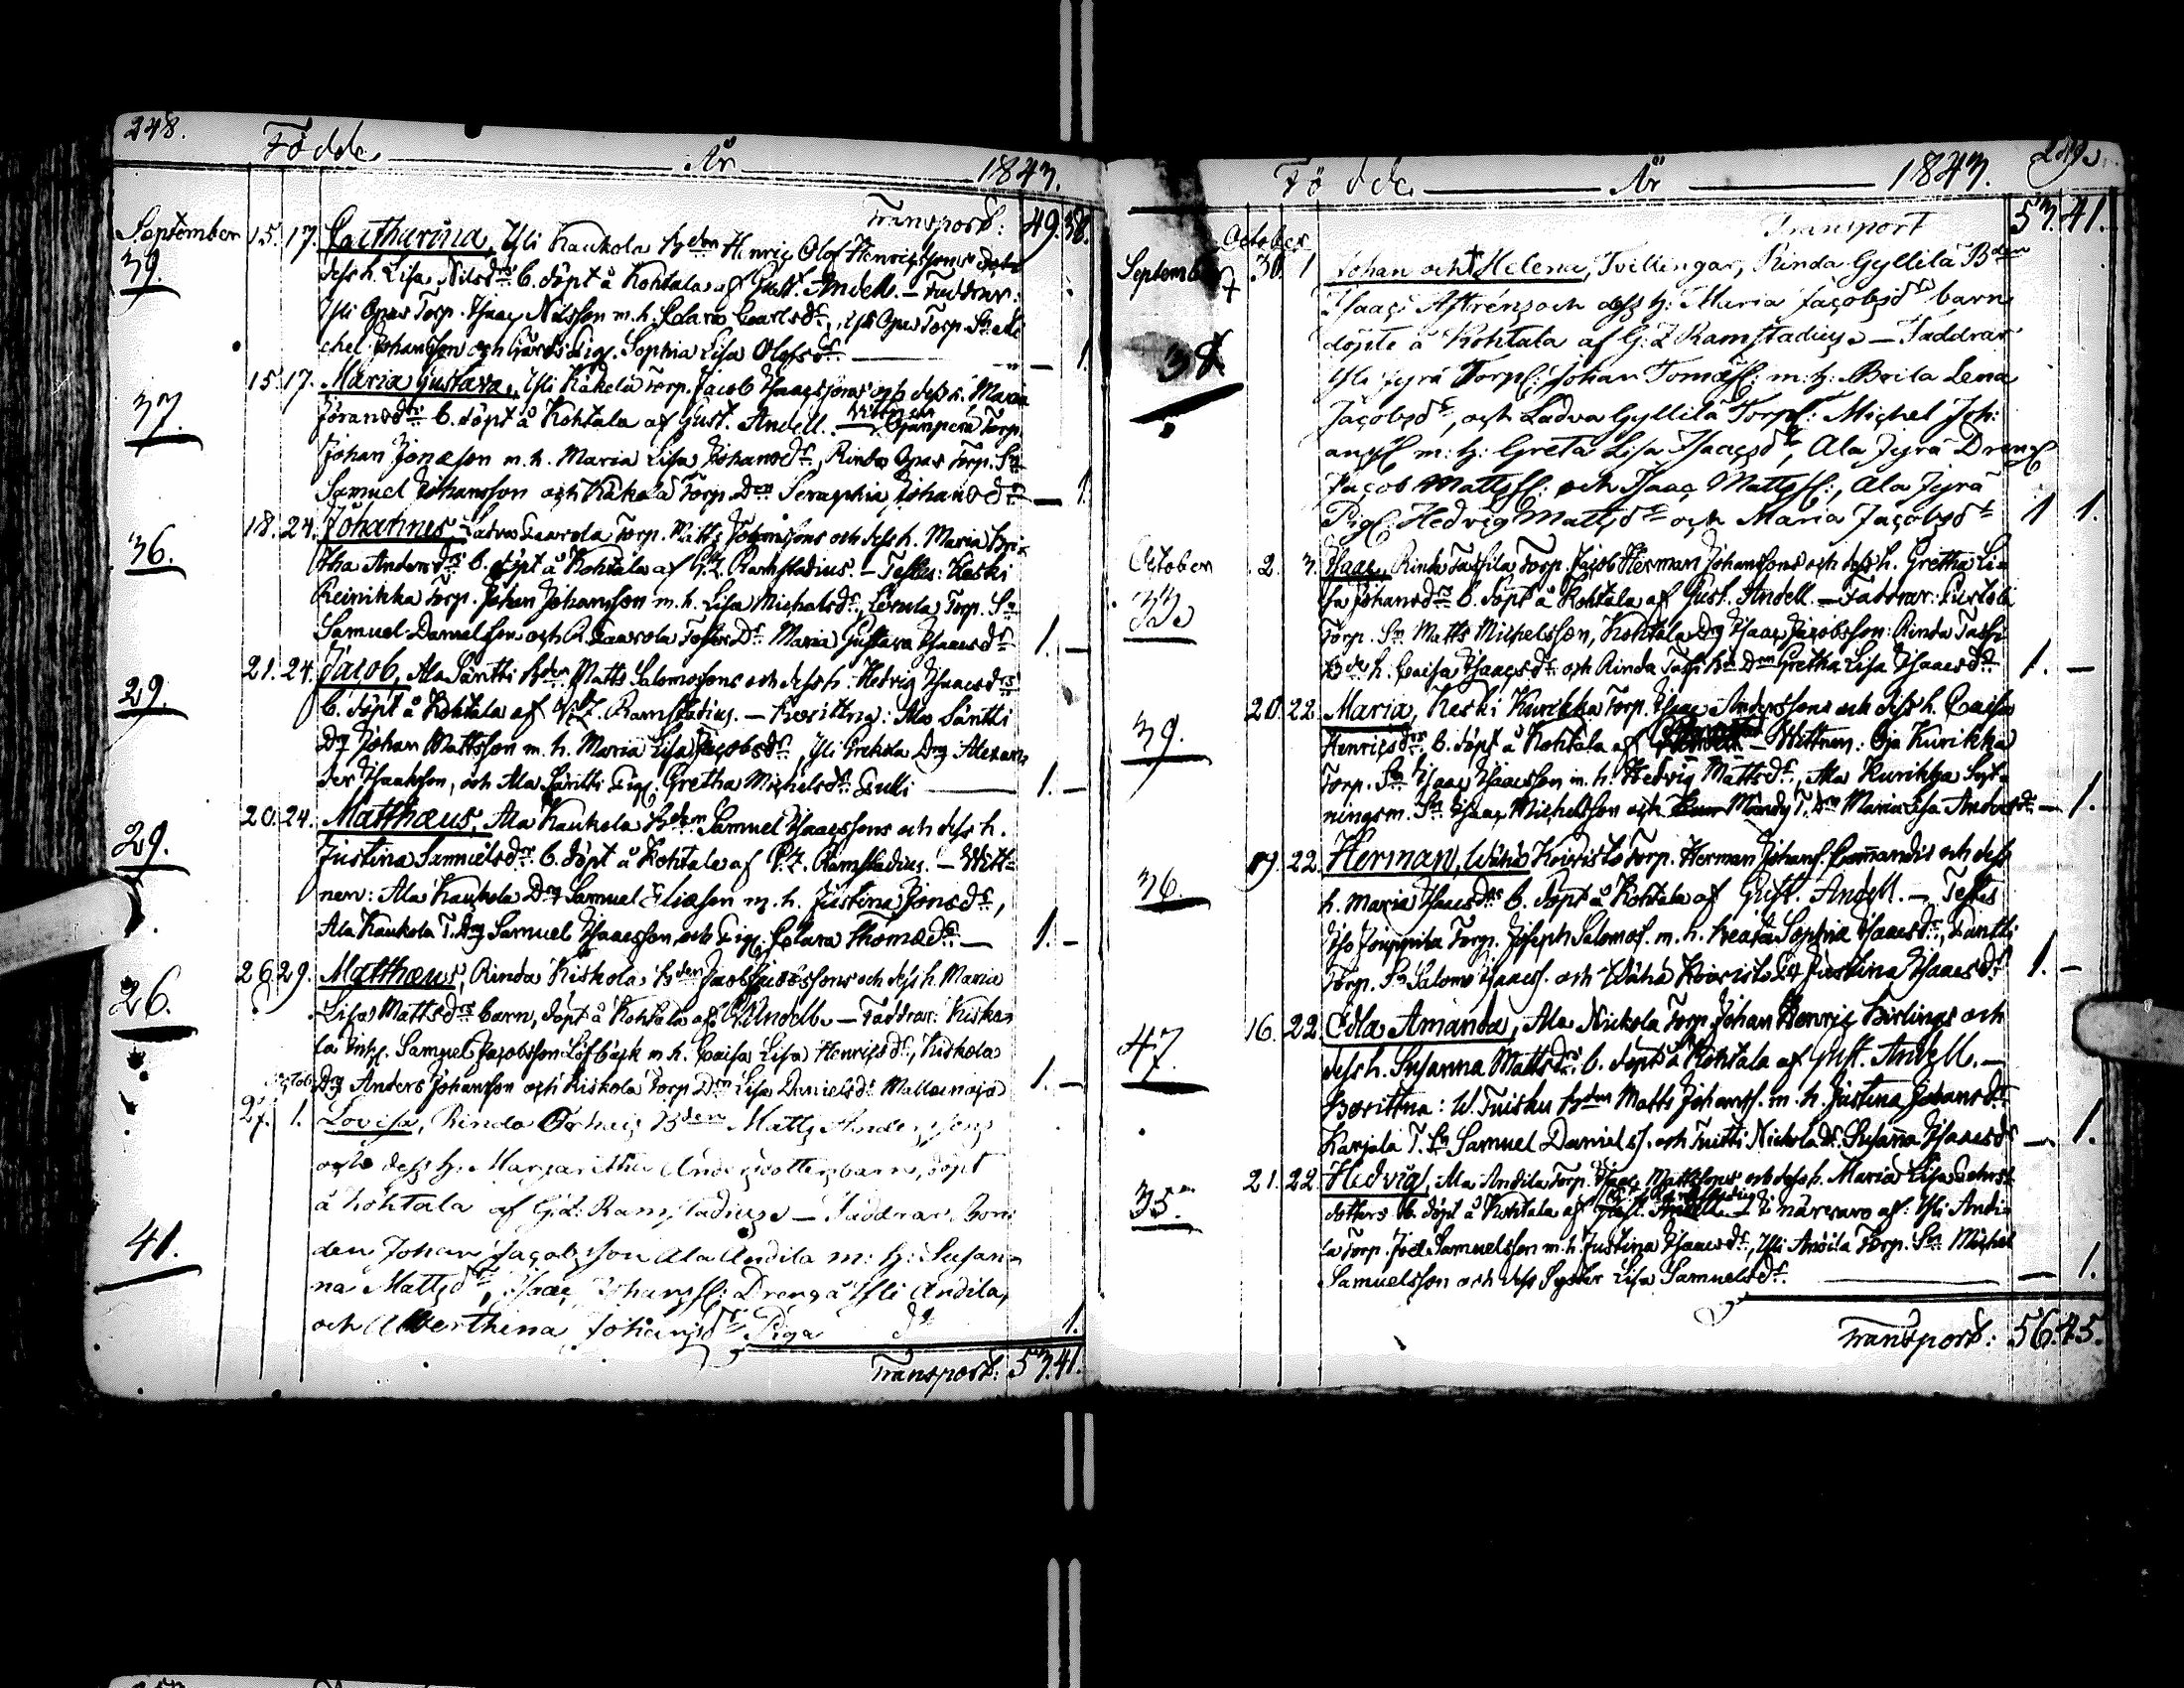 248.
Födde År 1843.
Transport: 49. 38.
September 15. 17. Catharina, Yli Kaukola Bden Henric Olof Henricssons och
39. dess h. Lisa Nilsdrs b. döpt å Kohtala af Gust. Andell. — Faddrar:
Yli Torp. Isaac Nilsson m. h. Clara Carlsdr, Yli Torp. Sn Mi-
chel Johansson och Pig. Sophia Lisa Olofsdr — — 1.
15. 17. Maria Gustava, Yli Käkelä Torp. Jacob Isaacssons och dess h. Maria
37. Göransdrs b. döpt å Kohtala af Gust. Andell. — Ojanperä Torp.
Johan Jonasson m. h. Maria Lisa Johansdr, Rinda Torp. Sn
Samuel Johansson och Käkelä Torp. Drn Seraphia Johansdr — 1.
18. 24. Johannes, Ladva Torp. Matts Johanssons och dess h. Maria Bri-
36. tha Andersdrs b. döpt å Kohtala af G. Z. Ramstadius. — Testes: Keski
Reinikka Torp. Johan Johansson m. h. Lisa Michelsdr, Torp. Sn
Samuel Danielsson och Dr Maria Gustava Isaacsdr 1. —
21. 24. Jacob, Ala Säntti Bden Matts Salomossons och dess h. Hedvig Isaacsdrs
29. b. döpt å Kohtala af G. Z. Ramstadius. — Bevittna: Ala Säntti
Dg Johan Mattsson m. h. Maria Lisa Jacobsdr, Yli Grekola Dng Alexan-
der Isaacsson, och Ala Säntti Pig. Gretha Michelsdr — 1. —
20. 24. Matthæus, Ala Kaukola Bden Samuel Isaacssons och dess h.
29. Justina Samuelsdrs b. döpt å Kohtala af G. Z. Ramstadius. — Witt-
nen: Ala Kaukola Dng Samuel Eliasson m. h. Justina Jonsdr,
Ala Kaukola T. Dng Samuel Isaacsson och Pig. Clara Thomædr — 1. —
26. 29. Matthæus, Rinda Kiskola Bden Jacob Jacobssons och dess h. Maria
26. Lisa Mattsdrs barn, döpt å Kohtala af G. Andell. — Faddrar: Kisko-
la Inh. Samuel Jacobsson Löfbäck m. h. Caisa Lisa Henricsdr, Kiskola
Octob. Dng Anders Johansson och Kiskola Torp. Drn Lisa Danielsdr 1. —
27. 1. Lovisa, Rinda Bden Matts Anderssons
och dess h: Margaretha Andersdotters barn, döpt
å Kohtala af G: Z: Ramstadius — Faddrar: Bon-
41. den Johan Jacobsson Ala Andila m: h: Susan-
na Mattsdr, Isaac Johanss: Dreng å Yli Andila,
och Alberthina Johansdr Piga dr 1.
Transport: 53. 41.
249.
Födde År 1843.
Transport 53. 41.
October
September 30. 1 Johan och † Helena, Tvillingar, Rinda Gyllilä Bden
Isaac Astréns och dess h: Maria Jacobsdrs barn
döpte å Kohtala af G: Z Ramstadius — Faddrar
38 Yli Jyrä Torp: Johan Tomæs: m: h: Brita Lena
Jacobsdr, och Ladva Gyllilä Torp: Michel Joh:
anss m: h: Greta Lisa Isaacsdr, Ala Jyrä Dreng
Jacob Mattss: och Isaac Mattss:, Ala Jyrä
Pig: Hedvig Mattsdr och Maria Jacobsdr 1 1.
October 2. 3. Isaac, Rinda Torp. Jacob Herman Johanssons och dess h. Gretha Li-
33. sa Johansdrs b. döpt å Kohtala af Gust. Andell. — Faddrar:
Torp. Sn Matts Michelsson, Kohtala Dg Isaac Jacobsson: Rinda
Bde h. Caisa Isaacsdr och Rinda Drn Gretha Lisa Isaacsdr 1. —
20. 22. Maria, Keski Kurikka Torp. Isaac Anderssons och dess h. Caisa
39. Henricsdrs b. döpt å Kohtala af — Wittnen: Oja Kurikka
Torp. Sn Isaac Isaacsson m. h. Hedvig Mattsdr, Ala Kurikka Syt-
ningsm. Sn Isaac Michelsson och T. Drn Maria Lisa Andersdr — 1.
19. 22. Herman, Wähä Koivisto Torp. Herman Johans. och dess
36. h. Maria Isaacsdrs b. döpt å Kohtala af Gust. Andell. — Testes
Iso Jouppila Torp. Joseph Salomos. m. h. Sophia Isaacsdr, Säntti
Torp. Sn Salomo Isaacs. och Wähä Koivisto Justina Isaacsdr 1. —
16. 22. Eda Amanda, Ala Nickola Torp. Johan Henric Birlings och
47. dess h. Susanna Mattsdrs b. döpt å Kohtala af Gust. Andell. —
Bevittna: W. Tuisku Bden Matts Johanss. m. h. Justina Johansdr
Karjala T. Sn Samuel Daniels. och Tuitti Nickola Susanna Isaacsdr — 1.
21. 22. Hedvig, Ala Andila Torp. Isaac Mattssons och dess h. Maria Lisa
35. dotters b. döpt å Kohtala af G. Z. Ramstadius i närvaro af: Yli Andi-
la Torp. Joel Samuelsson m. h. Justina Isaacsdr, Yli Andila Torp. Sn Michel
Samuelsson och dess Syster Lisa Samuelsdr. — 1.
Transport: 56. 45.